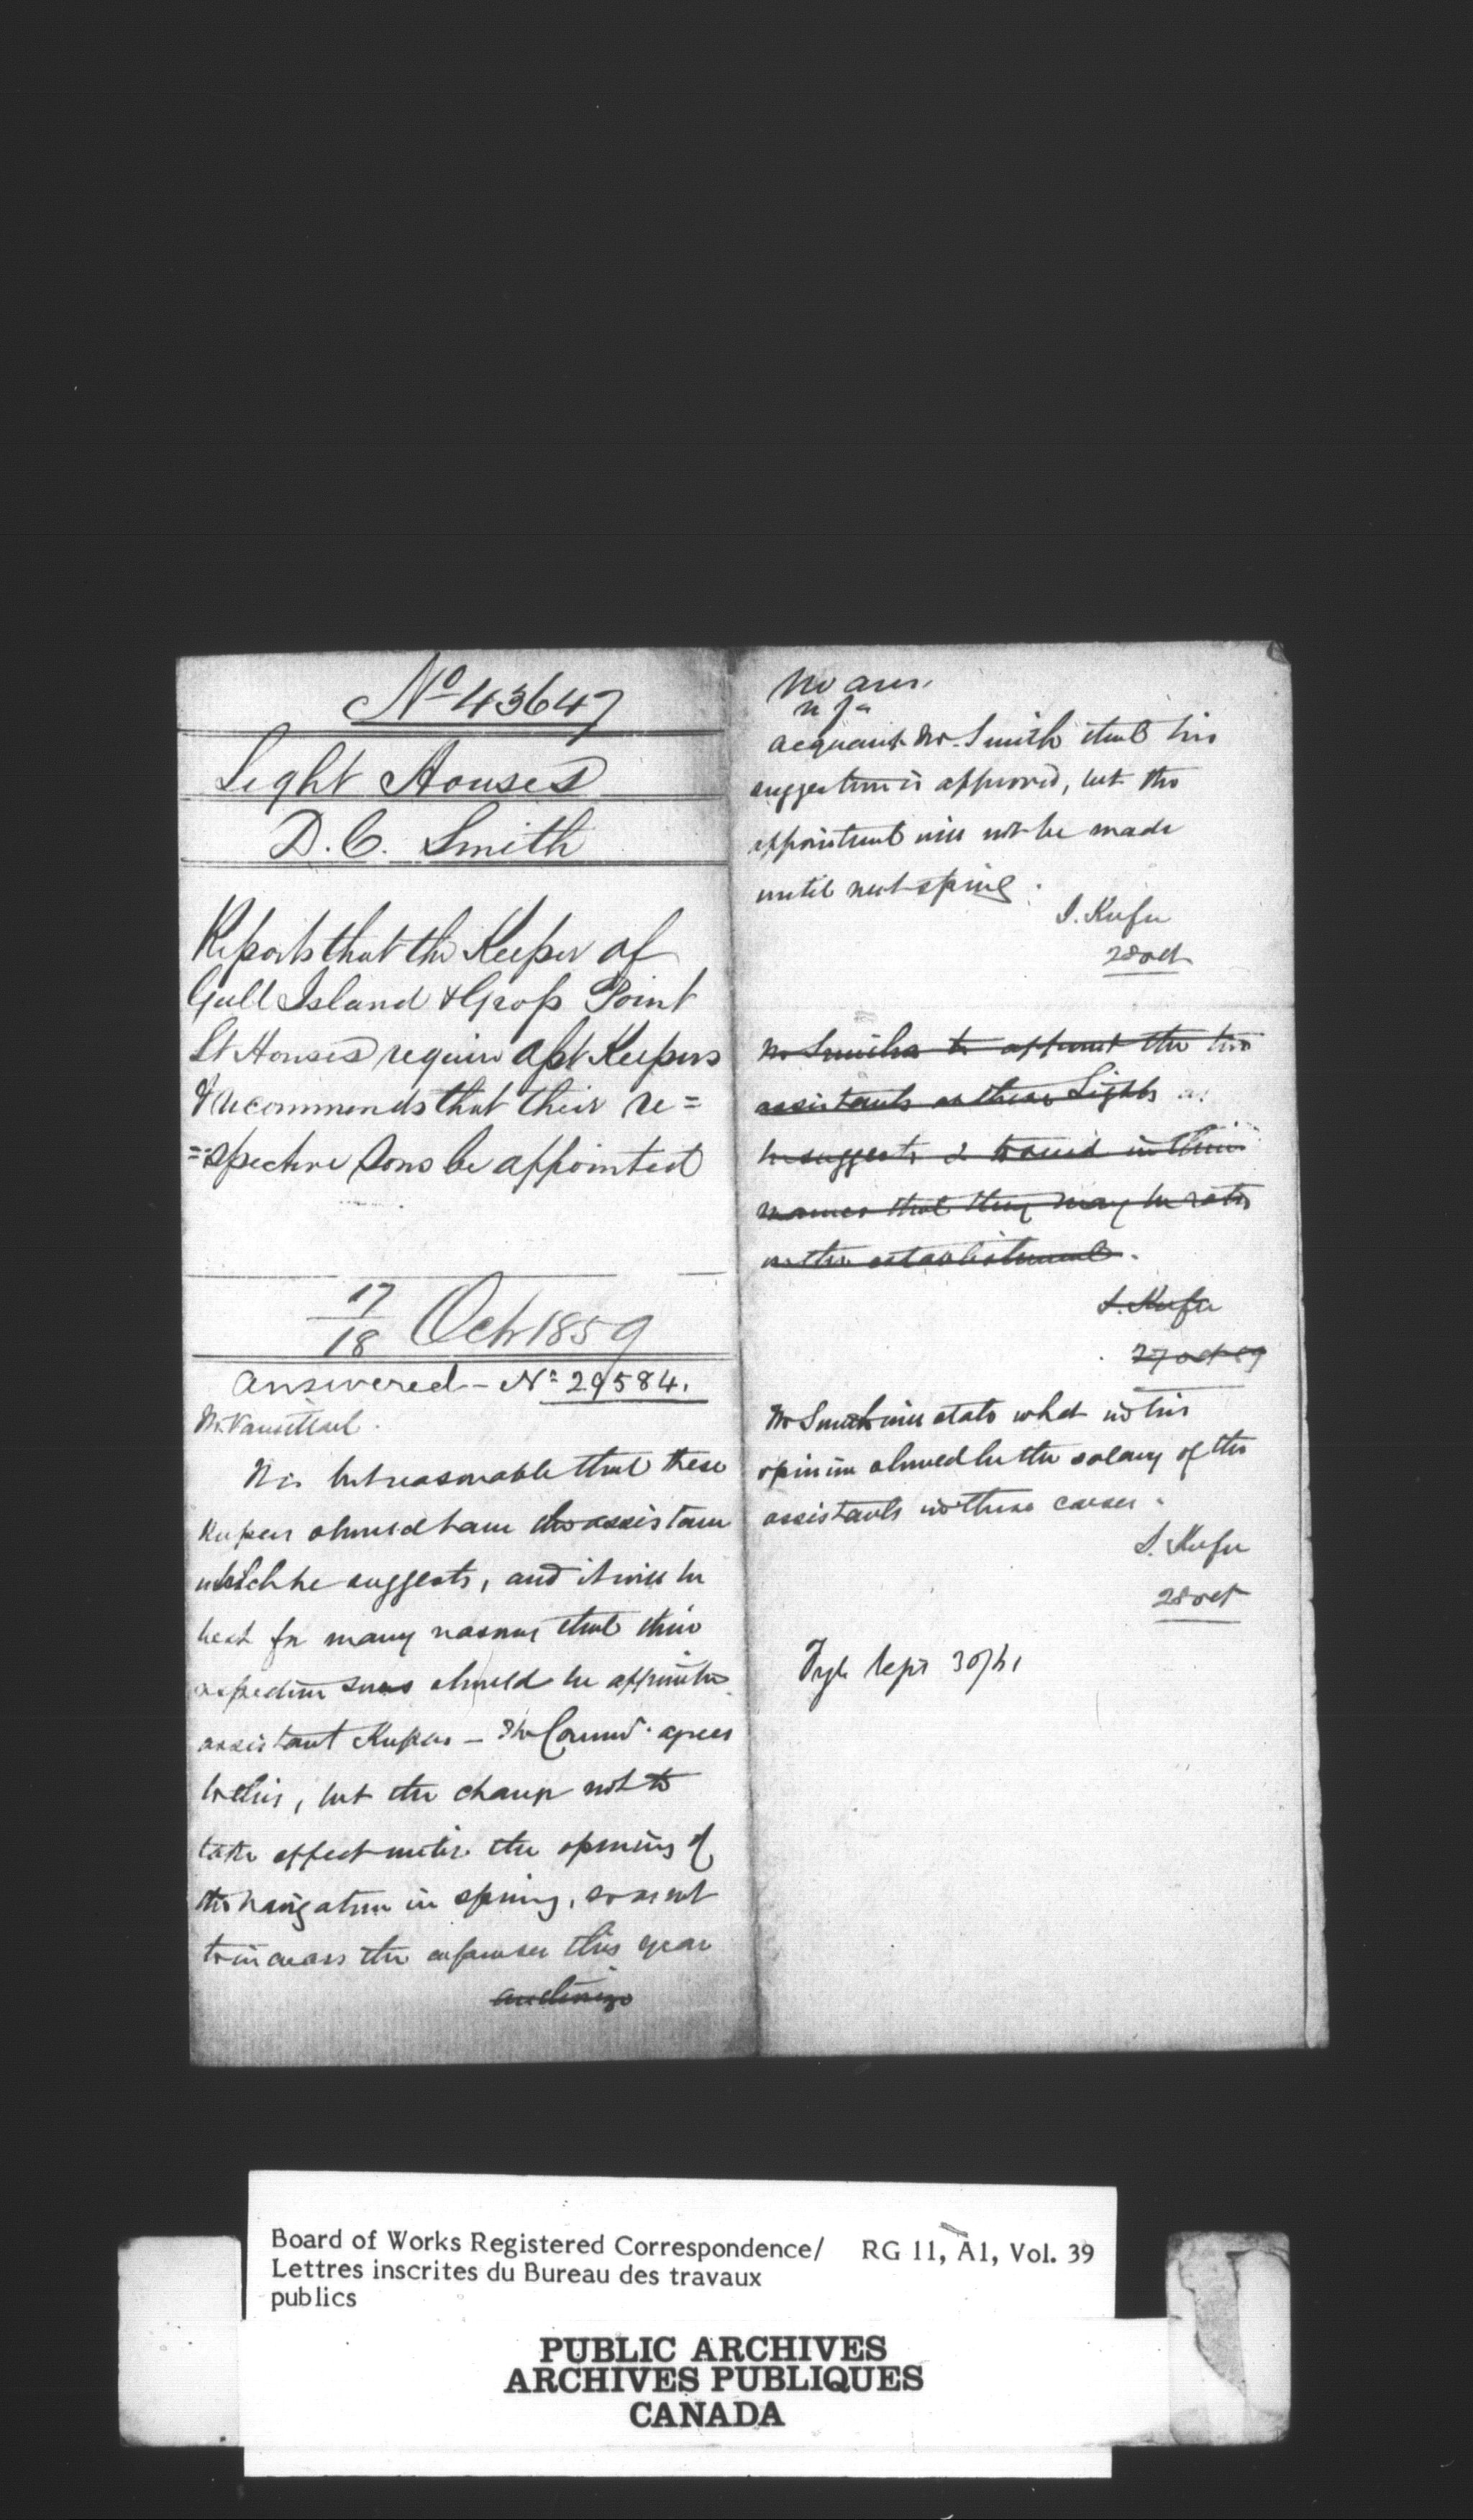 No 43647
Light Houses
D. C. Smith
Reports that the Keeper of
Gull Island & Gross Point
Lt Houses require asst Keepers
& recommends that their re=
=spective sons be appointed
17/18 Octr 1859
Answered - No 29584.
Mr Vansittart.
It is but reasonable that these
Keepers should have the assistance
which he suggests, and it will be
best for many reasons that their
respective sons should be appointed
assistant Keepers - The Commr. agrees
to this, but the change not to
take effect until the opening of
the navigation in spring, so as not
to increase the expenses this year
No ans.
acquaint Mr. Smith that his
suggestion is approved, but the
appointment will not be made
until next spring.
28 Oct
Mr Smith to appoint the two
assistants at these Lights as
he suggests & to send in their
names that they may be
on the establishment.
27 Oct 59
Mr Smith will state what in his
opinion should be the salary of the
assistants in these cases.
28 Oct
Fyle Sepr 30/61
Board of Works Registered Correspondence/ RG 11, A1, Vol. 39
Lettres inscrites du Bureau des travaux
publics
PUBLIC ARCHIVES
ARCHIVES PUBLIQUES
CANADA